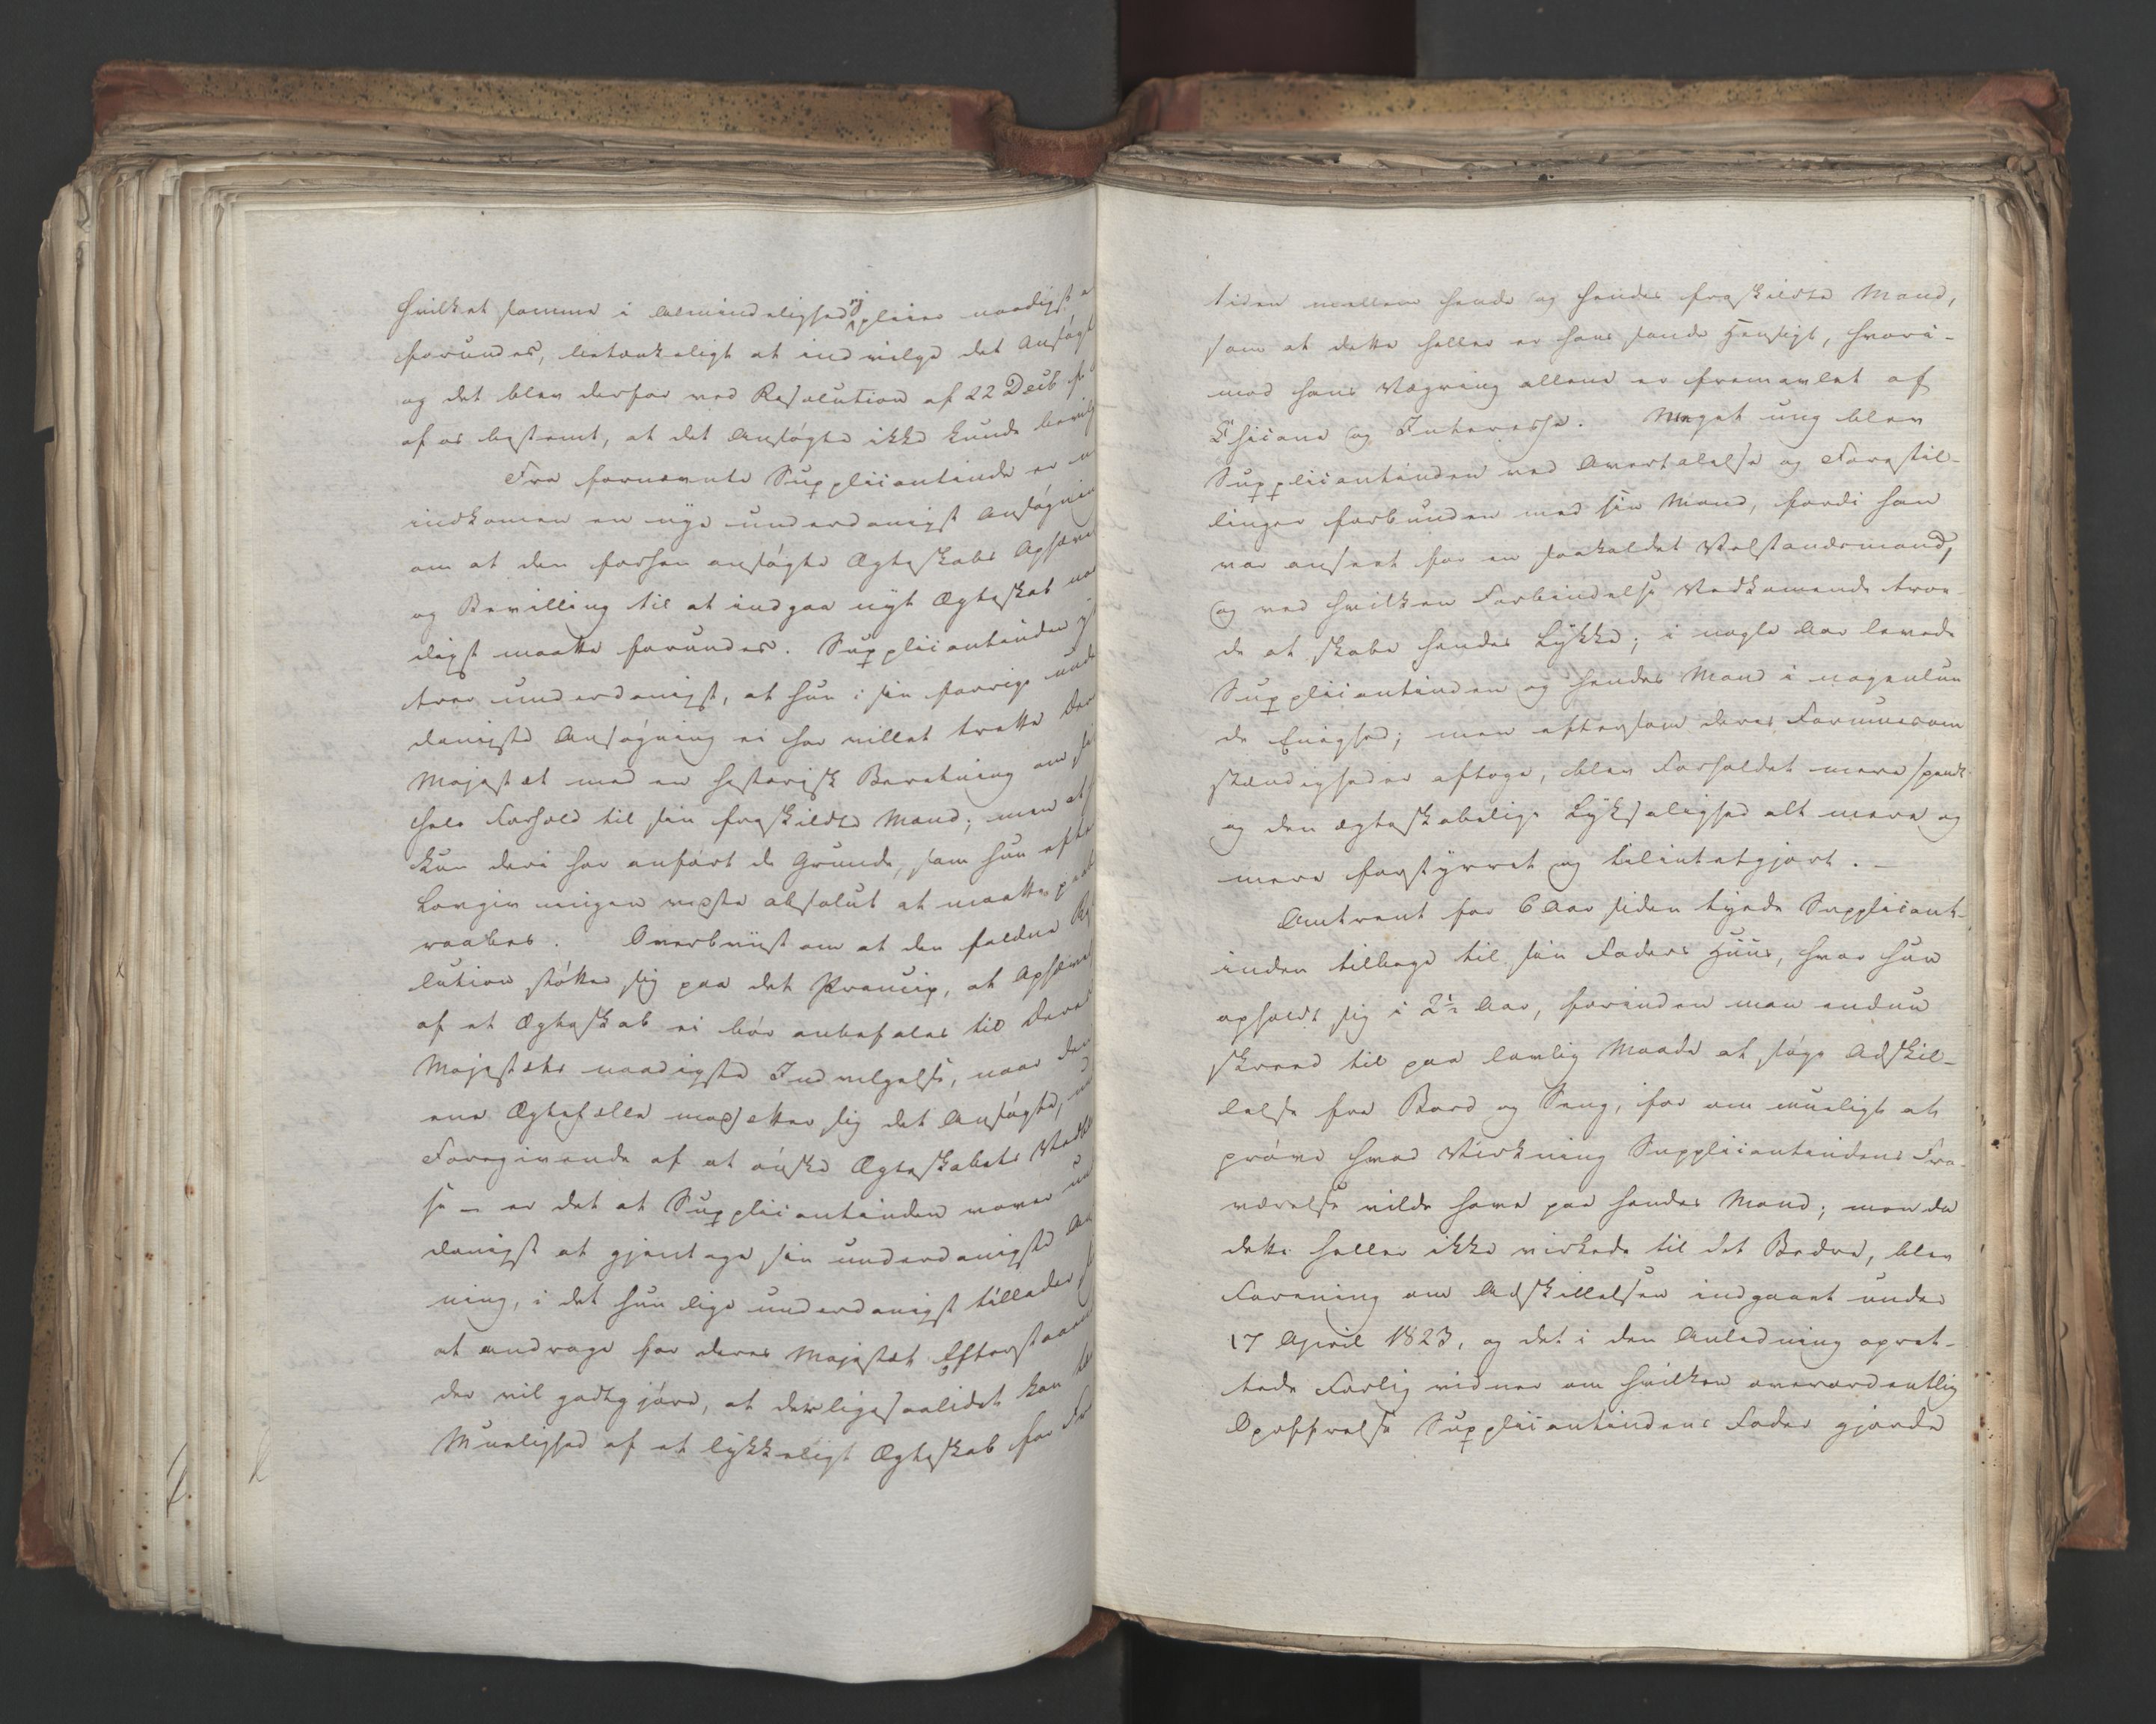 hvilket samme i Almindelighed ej pleier naadigst a
forundes, betænkeligt at indvilge det Ansøgt
og det blev derfor ved Resolution af 22 Decb. f.
af os bestemt, at det Ansøgte ikke kunde bevilg
Fra fornævnte Supplicantinde er n
indkomen en nye underdanigst Ansøgnin
om at den forhen ansøgte Ægteskabs Ophæve
og Bevilling til at indgaa nyt Ægteskab naa
digst maatte forundes. Supplicantinden yt
trer underdanigst, at hun i sin forrige unde
danigste Ansøgning ei har villet trætte Der
Majestæt med en historisk Beretning om si
hele Forhold til sin fraskildte Mand; men at
kun deri har anført de Grunde, som hun efte
Lovgivningen vidste absolut at maatte paa
raabes. Overbeviist om at den faldne Re
lution støtter sig paa det Prancip, at Ophæve
af et Ægteskab ei bør anbefales til Deres
Majestæts naadigste Indvilgelse, naar den
ene Ægtefælle modsætter sig det Ansøgte, un
Foregivende af at ønske Ægteskabets Vedli
se – er det at Supplicantinden vover un
danigst at gjentage sin underdanigste An
ning, i det hun lige underdanigst tillader si
at andrage for Deres Majestæt Efterstaaen
der vil godtgjøre, at der ligesaalidet kan
Muelighed af et lykkeligt Ægteskab for Fre
tiden mellem hende og hendes fraskildte Mand,
som at dette heller er hans sande Hensigt, hvori-
mod hans Vægring allene er fremavlet af
Chicane og Interesse. Meget ung blev
Supplicantinden ved Overtalelse og Forestil-
linger forbunden med sin Mand, fordi han
var anseet for en saakaldet Velstandsmand,
og ved hvilken Forbindelse Vedkomende troe-
de at skabe hendes Lykke; i nogle Aar levede
Supplicantinden og hendes Mand i nogenlun
de Enighed; men eftersom deres Formuesom
stændigheder aftoge, blev Forholdet mere spændt
og den ægteskabelige Lyksalighed alt mere og
mere forstyrret og tilintetgjort. –
Omtrent for 6 Aar siden tyede Supplicant-
inden tilbage til sin Faders Huus, hvor hun
opholdt sig i 2½ Aar, forinden man endnu
skreed til paa lovlig Maade at søge Adskil-
lelse fra Bord og Seng, for om mueligt at
prøve hvad Virkning Supplicantindens Fra-
værelse vilde have paa hendes Mand; men da
dette heller ikke virkede til det Bedre, blev
Forening om Adskillelsen indgaaet under
17 April 1823, og det i den Anledning opret-
tede Forlig vidner om hvilken overordentlig
Opoffrelse Supplicantindens Fader gjorde